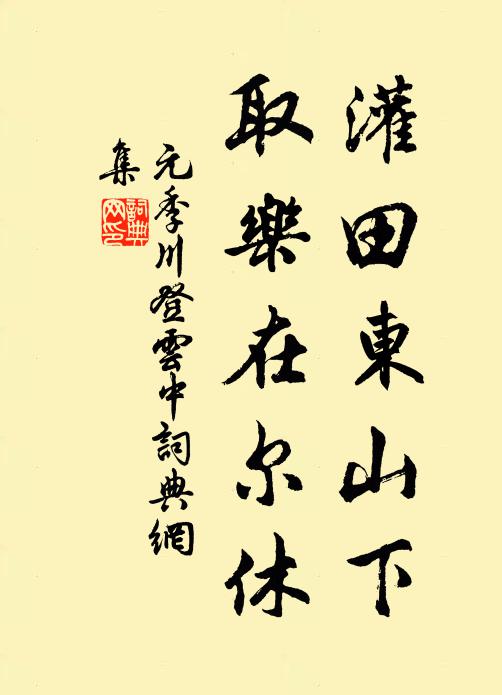 灌田東山下
取樂在尔休
元季川登雲中詞典網
集
詞典
网印